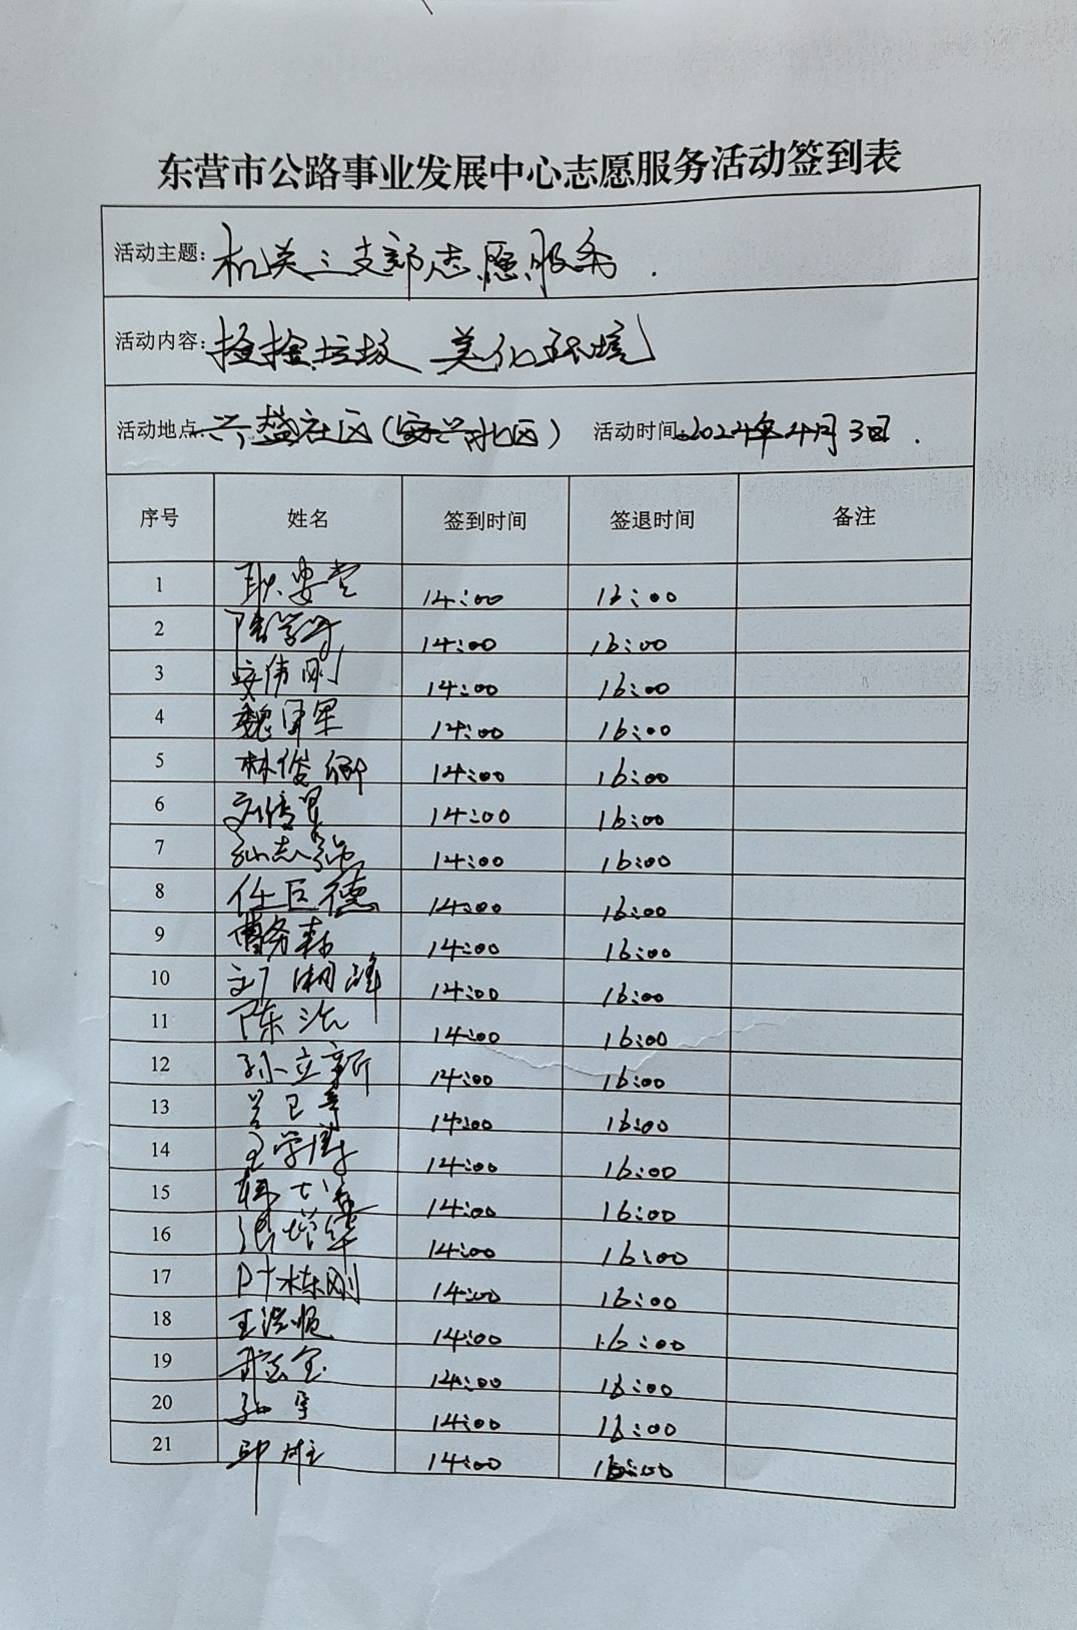 东营市公路事业发展中心志愿服务活动签到表
活动主题: 机关三支部志愿服务.
活动内容: 捡拾垃圾 美化环境
活动地点: 兴盛社区(安兴北区) 活动时间: 2024年4月3日.
序号 姓名 签到时间 签退时间 备注
1 耿安堂 14:00 16:00
2 14:00 16:00
3 安伟刚 14:00 16:00
4 魏 军 14:00 16:00
5 林俊卿 14:00 16:00
6 刘传 14:00 16:00
7 孙志强 14:00 16:00
8 任巨德 14:00 16:00
9 14:00 16:00
10 刘湘峰 14:00 16:00
11 陈浩 14:00 16:00
12 孙立新 14:00 16:00
13 14:00 16:00
14 王学 14:00 16:00
15 14:00 16:00
16 张 华 14:00 16:00
17 叶栋刚 14:00 16:00
18 王洪顺 14:00 16:00
19 14:00 16:00
20 14:00 16:00
21 14:00 16:00